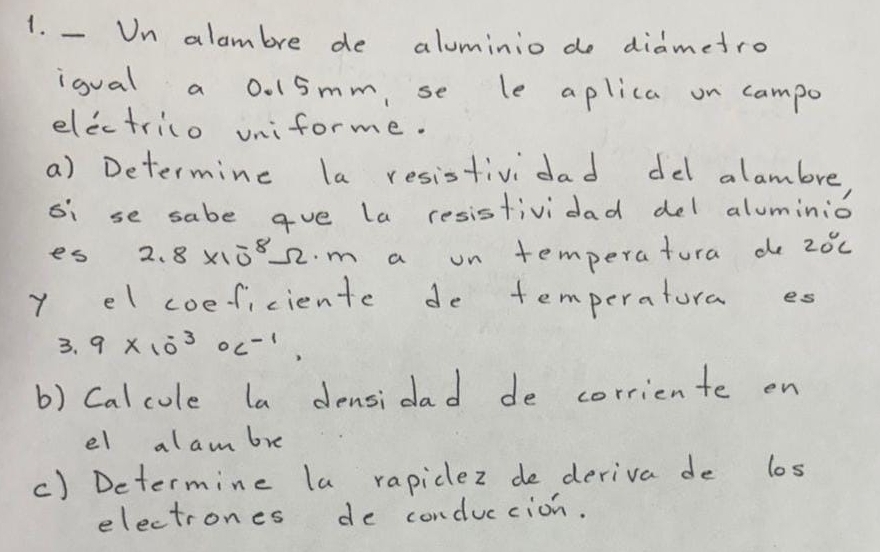 1. - Un alambre de aluminio de diámetro
igual a 0.15mm, se le aplica un campo
eléctrico uniforme.
a) Determine la resistividad del alambre,
si se sabe que la resistividad del aluminio
es 2.8 x10⁻⁸ Ω·m a un temperatura de 20°C
y el coeficiente de temperatura es
3.9 x10⁻³ °C⁻¹,
b) Calcule la densidad de corriente en
el alambre
c) Determine la rapidez de deriva de los
electrones de conducción.